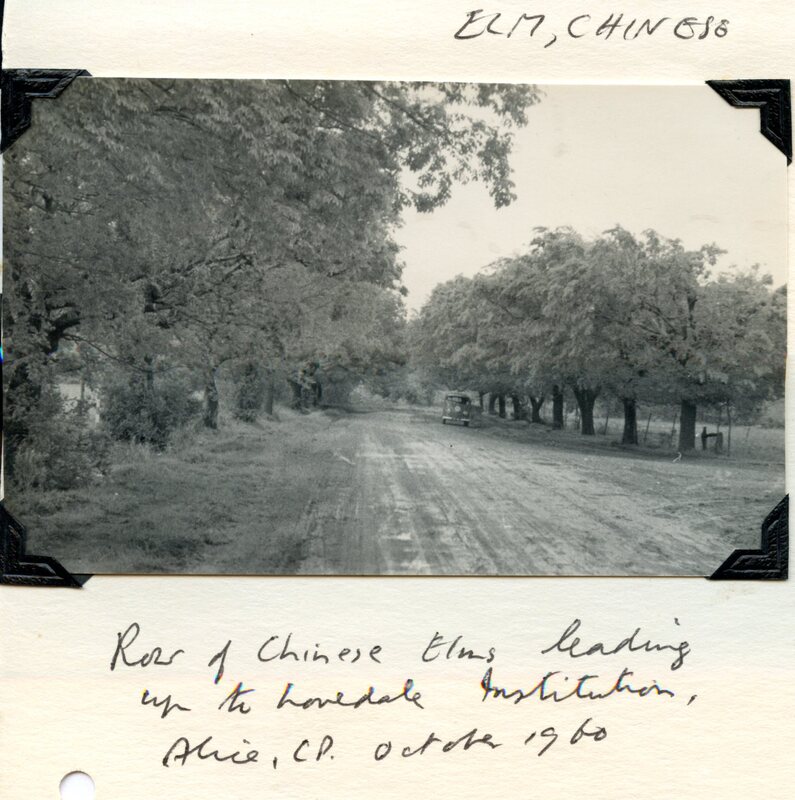 ELM, CHINESE
Row of Chinese Elms leading
up to Lovedale Institution,
Alice, CP. October 1960